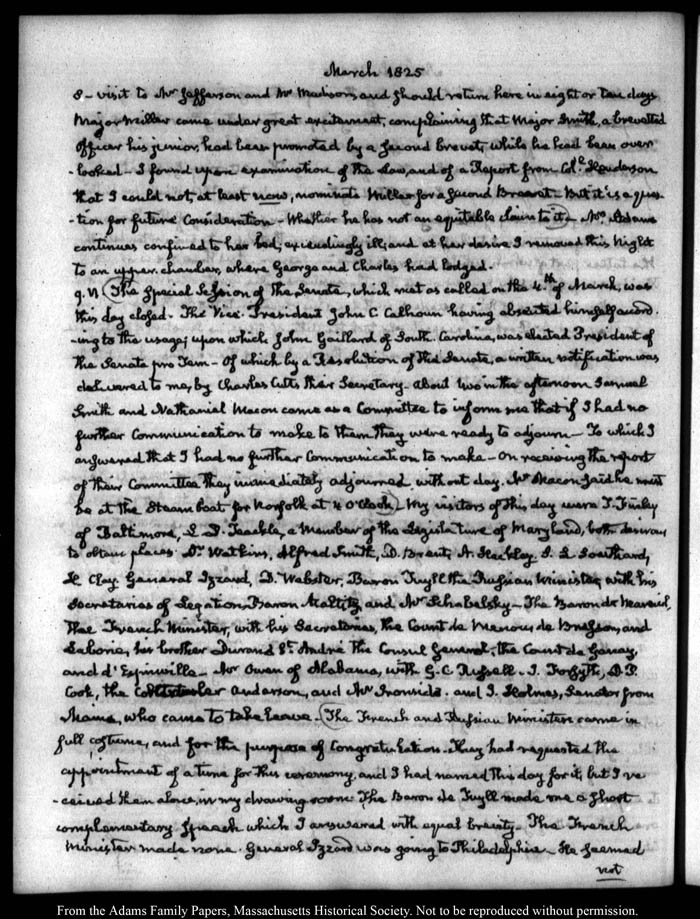 March 1825
8 – visit to Mr Jefferson and Mr Madison, and should return here in eight or ten days
Major Miller came under great excitement, complaining that Major Smith, a brevetted
officer his junior, had been promoted by a second brevet, while he had been over
-looked – I found upon examination of the Law, and of a Report from Coll. Henderson
that I could not, at least now, nominate Miller for a second Brevet – But it is a ques-
-tion for future Consideration – Whether he has not an equitable claim to it – Mrs Adams
continues confined to her bed, exceedingly ill; and at her desire I removed this Night
to an upper chamber, where George and Charles had lodged.
9. VI The Special Session of the Senate, which met as called on the 4th of March, was
this day closed. The Vice-President John C Calhoun having absented himself accord-
-ing to the usage; upon which John Gaillard of South Carolina, was elected President of
the Senate pro Tem – Of which by a Resolution of the Senate, a written notification was
delivered to me, by Charles Cutts their Secretary – About two in the afternoon Samuel
Smith and Nathaniel Macon came as a Committee to inform me that if I had no
further Communication to make to them they were ready to adjourn – To which I
answered that I had no further Communication to make – On receiving the report
of their Committee they immediately adjourned without day. Mr Macon said he must
be at the Steam boat for Norfolk at 4 O'Clock – My visitors of this day were J. Finley
of Baltimore, L. D. Teackle, a Member of the Legislature of Maryland, both desirous
to obtain places. Dr Watkins, Alfred Smith, D. Brent, A. Hackley S. L Southard,
H. Clay General Izzard, D. Webster, Baron Tuyll the Russian Minister, with his
Secretaries of Legation, Baron Maltitz, and Mr Schabelsky – The Baron de Mareuil,
the French Minister, with his Secretaries, the Count de Menou, de Bresson, and
Laborie, his brother Durand St. André the Consul General, the Count de
and d'Espinville – Mr Owen of Alabama, with G. C Russell – J. Forsyth, D. P.
Cook, the Comptroller Anderson, and Mr Ironside. and J. Holmes, Senator from
Maine, who came to take leave – The French and Russian Ministers came in
full costume, and for the purpose of Congratulation – They had requested the
appointment of a time for this ceremony, and I had named this day for it; but I re-
-ceived them alone, in my drawing room The Baron de Tuyll made me a short
complementary speech which I answered with equal brevity – The French
Minister made none. General Izzard was going to Philadelphia – He seemed
not
From the Adams Family Papers, Massachusetts Historical Society. Not to be reproduced without permission.